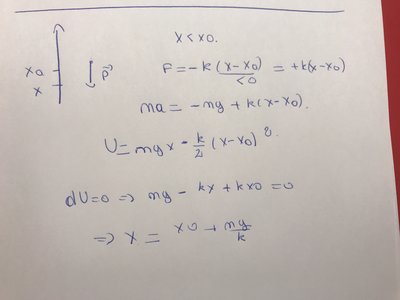 x < x0.
x0
x
P⃗
F = -k (x-x0) = +k(x-x0)
<0
ma = -mg + k(x-x0).
U = mgx - k/2 (x-x0)².
dU=0 => mg - kx + kx0 = 0
=> x = x0 + mg/k